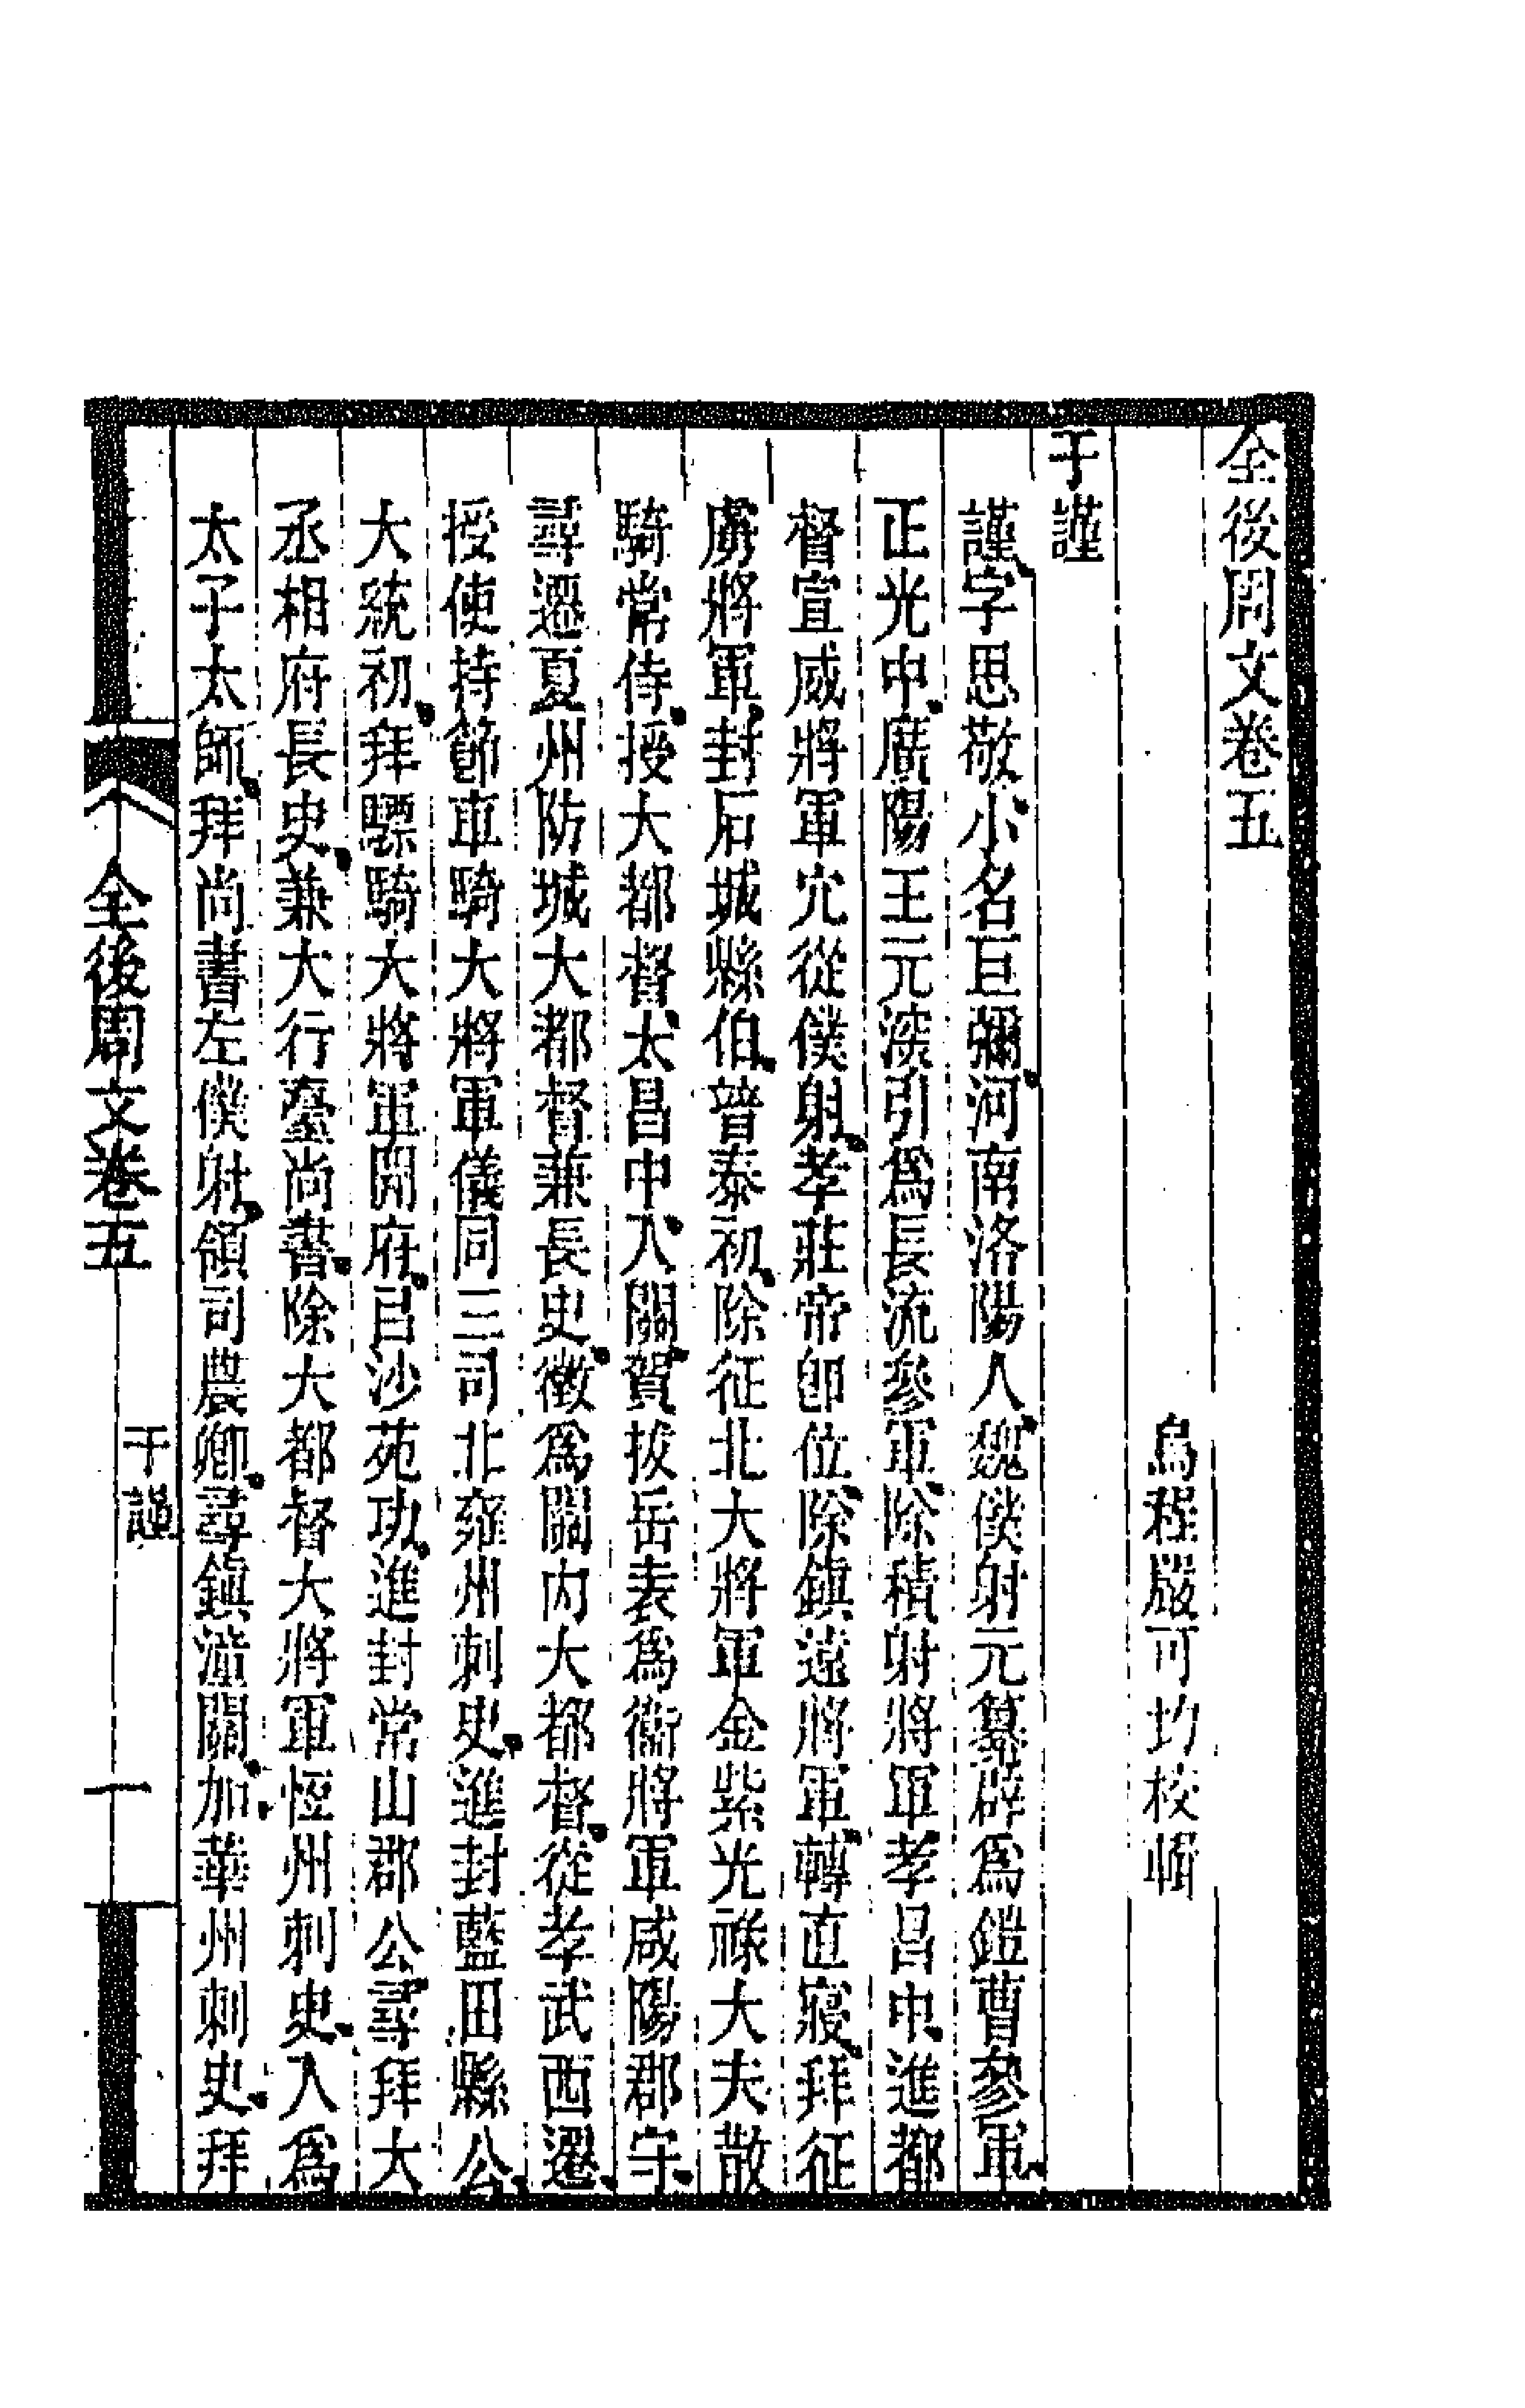 全後周文卷五
烏程嚴可均校輯
于謹
謹字思敬小名巨彌河南洛陽人魏僕射元纂辟爲鎧曹參軍
正光中廣陽王元深引爲長流參軍除積射將軍孝昌中進都
督宣威將軍宂從僕射孝莊帝卽位除鎮遠將軍轉直寢拜征
虜將軍封石城縣伯普泰初除征北大將軍金紫光祿大夫散
騎常侍授大都督太昌中入關賀拔岳表爲衞將軍咸陽郡守
尋遷夏州防城大都督兼長史徵爲閤內大都督從孝武西遷
授使持節車騎大將軍儀同三司北雍州刺史進封藍田縣公
大統初拜驃騎大將軍開府㠯沙苑功進封常山郡公尋拜大
丞相府長史兼大行臺尚書除大都督大將軍恆州刺史入爲
太子太師拜尚書左僕射領司農卿尋鎮潼關加華州刺史拜
全後周文卷五 于謹 一